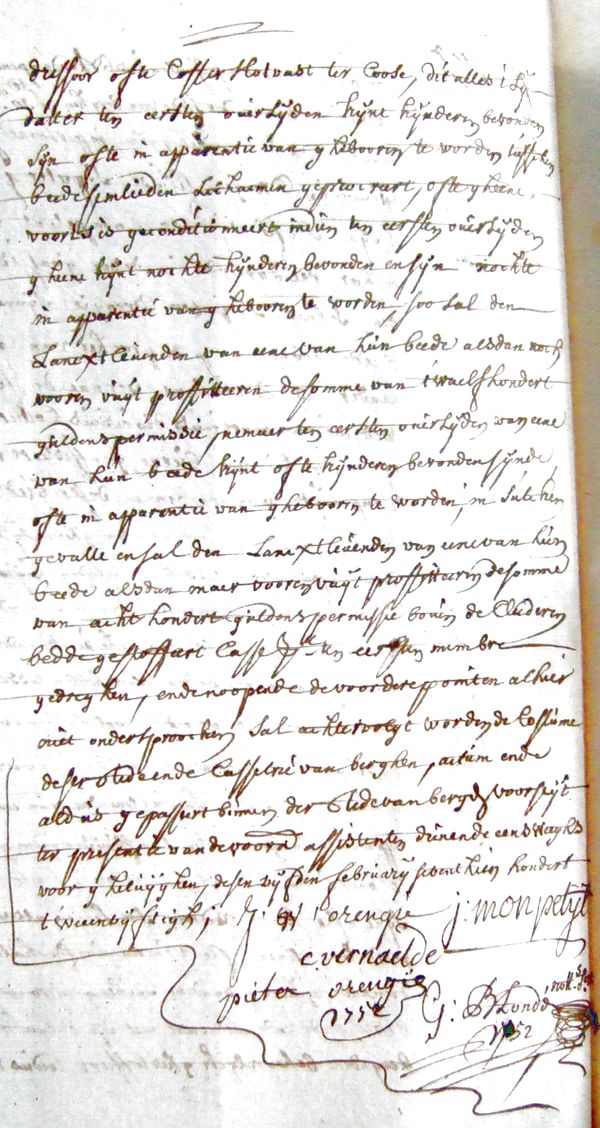 dressoor ofte Coffer Hotvast ter Coose, dit alles 't sy
datter ten eersten overlyden kynt kynderen bevonden
syn ofte in apparentie van ghebooren te worden tusschen
beede hemlieden Lichaemen geprocreert, ofte gheene,
voorts is geconditionneert indien ten eersten overlyden
gheene kynt nochte kynderen bevonden en syn nochte
in apparentie van gheboore te worden, soo sal den
Lancxtlevenden van eene van hun beede alsdan noch
vooren vuyt proffitteeren de somme van twaelf hondert
guldens permissie, nemaer ten eersten overlyden van eene
van hun beede kynt ofte kynderen bevonden synde,
ofte in apparentie van gheboorn te worden, in sulcken
gevalle en sal den Lancxtlevenden van eene van hun
beede alsdan maer vooren vuyt proffitteerin de somme
van acht hondert guldens permissie boven de Cleederen
bedde gestoffeert Casse ten eersten nimbre
gedreghen, ende noopende de voordere pointen alhier
niet ondersproocken sal achtervolgt worden de Costume
deser stede ende Casselrie van berghen, actum ende
aldus gepasseert binnen der stede van berghen voorseyt
ter presentie van de voorn assistenten dienende eensweeghs
voor ghetuyghen, desen vyfden february seventhien hondert
tweenvyftigh;
J: orengie j: monpetyt
c. vernaelde
pieter orengie
1752
G: Blonde nott:
1752